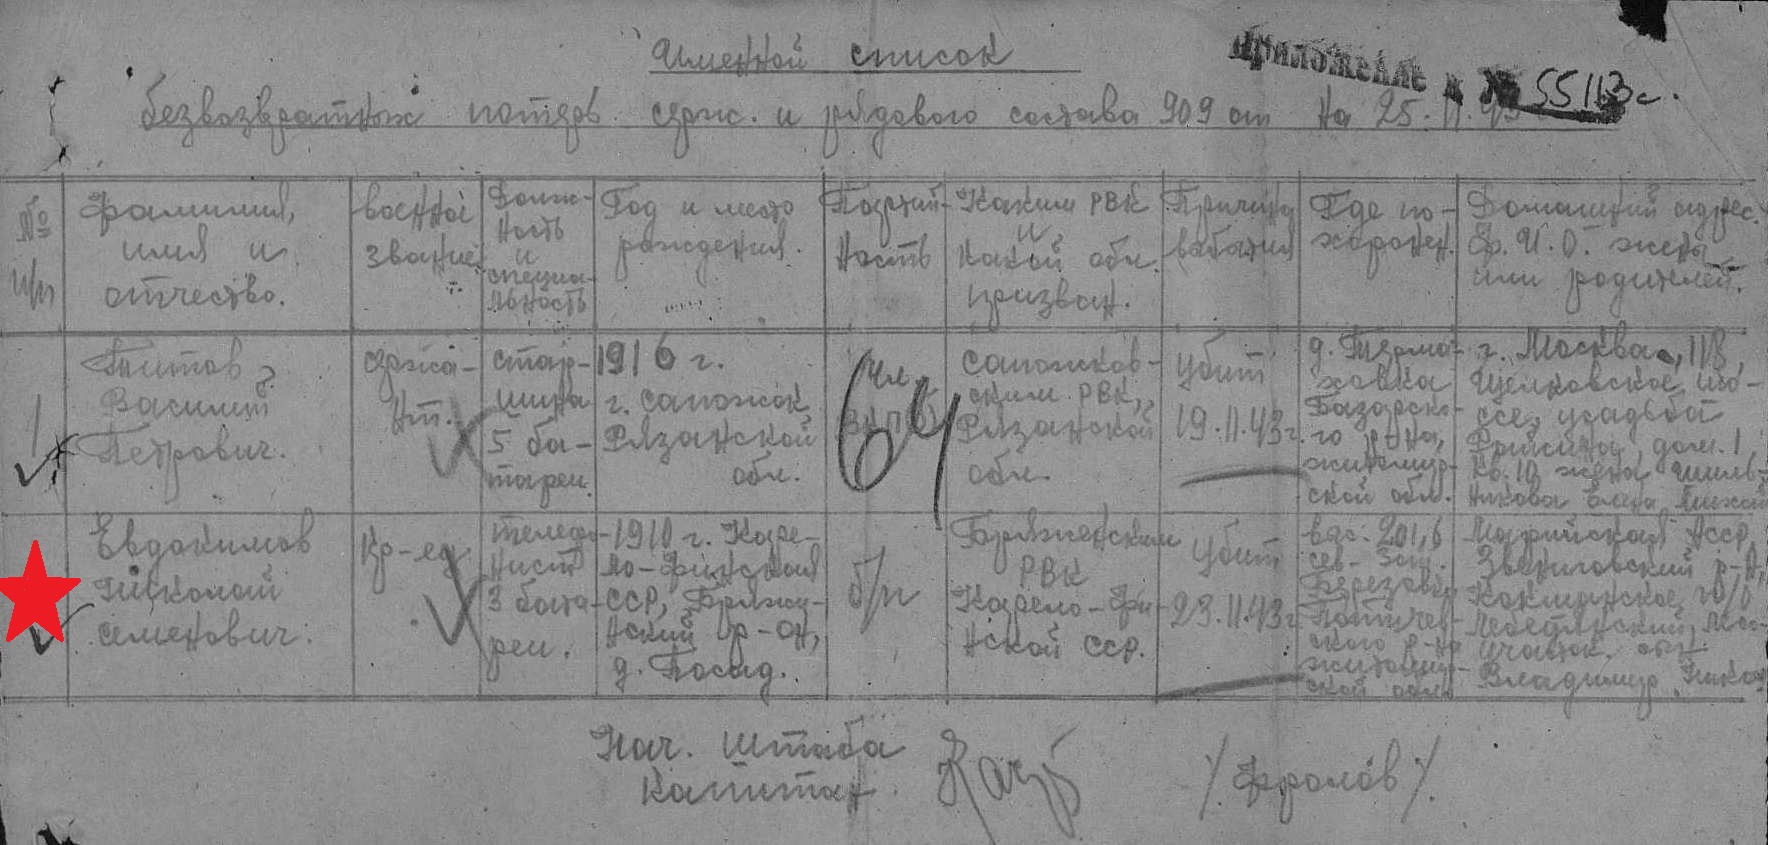 Именной список
Приложение к № 55113с.
безвозвратных потерь серж. и рядового состава 909 ап на 25.11.43
№ п/п
фамилия,
имя и
отчество.
военное
звание
Долж-
ность
и
специа-
льность
Год и место
рождения.
Партий-
ность
Каким РВК
и
какой обл.
призван.
Причина
выбытия
Где по-
хоронен.
Домашний адрес.
Ф. И. О. жены
или родителей.
1
Титов
Василий
Петрович.
сержа-
нт.
стар-
шина
5 ба-
тареи.
1916 г.
г. Сапожок
Рязанской
обл.
чл.
ВКП(б)
64
Сапожков-
ским РВК,
Рязанской
обл.
убит
19.11.43г.
д.
Базарско-
го р-на,
житомир-
ской обл.
г. Москва, 118,
Щелковское шо-
ссе, усадьба
дом. 1,
кв. 10 жена
Елена
Евдокимов
Николай
Семенович.
Кр-ец
телефо-
нист
3 бата-
реи.
1910 г. Каре-
ло-Финская
ССР, Пряжи-
нский р-он,
д. Посад.
б/п
Пряженским
РВК
Карело-Фи-
нской ССР.
убит
23.11.43г
выс. 201,6
сев-зап.
р-на
житомир-
ской обл.
Марийская АССР,
Звениговский р-н,
Кокшайское п/о
участок.
Владимир
Нач. штаба
Капитан
/Фролов/.